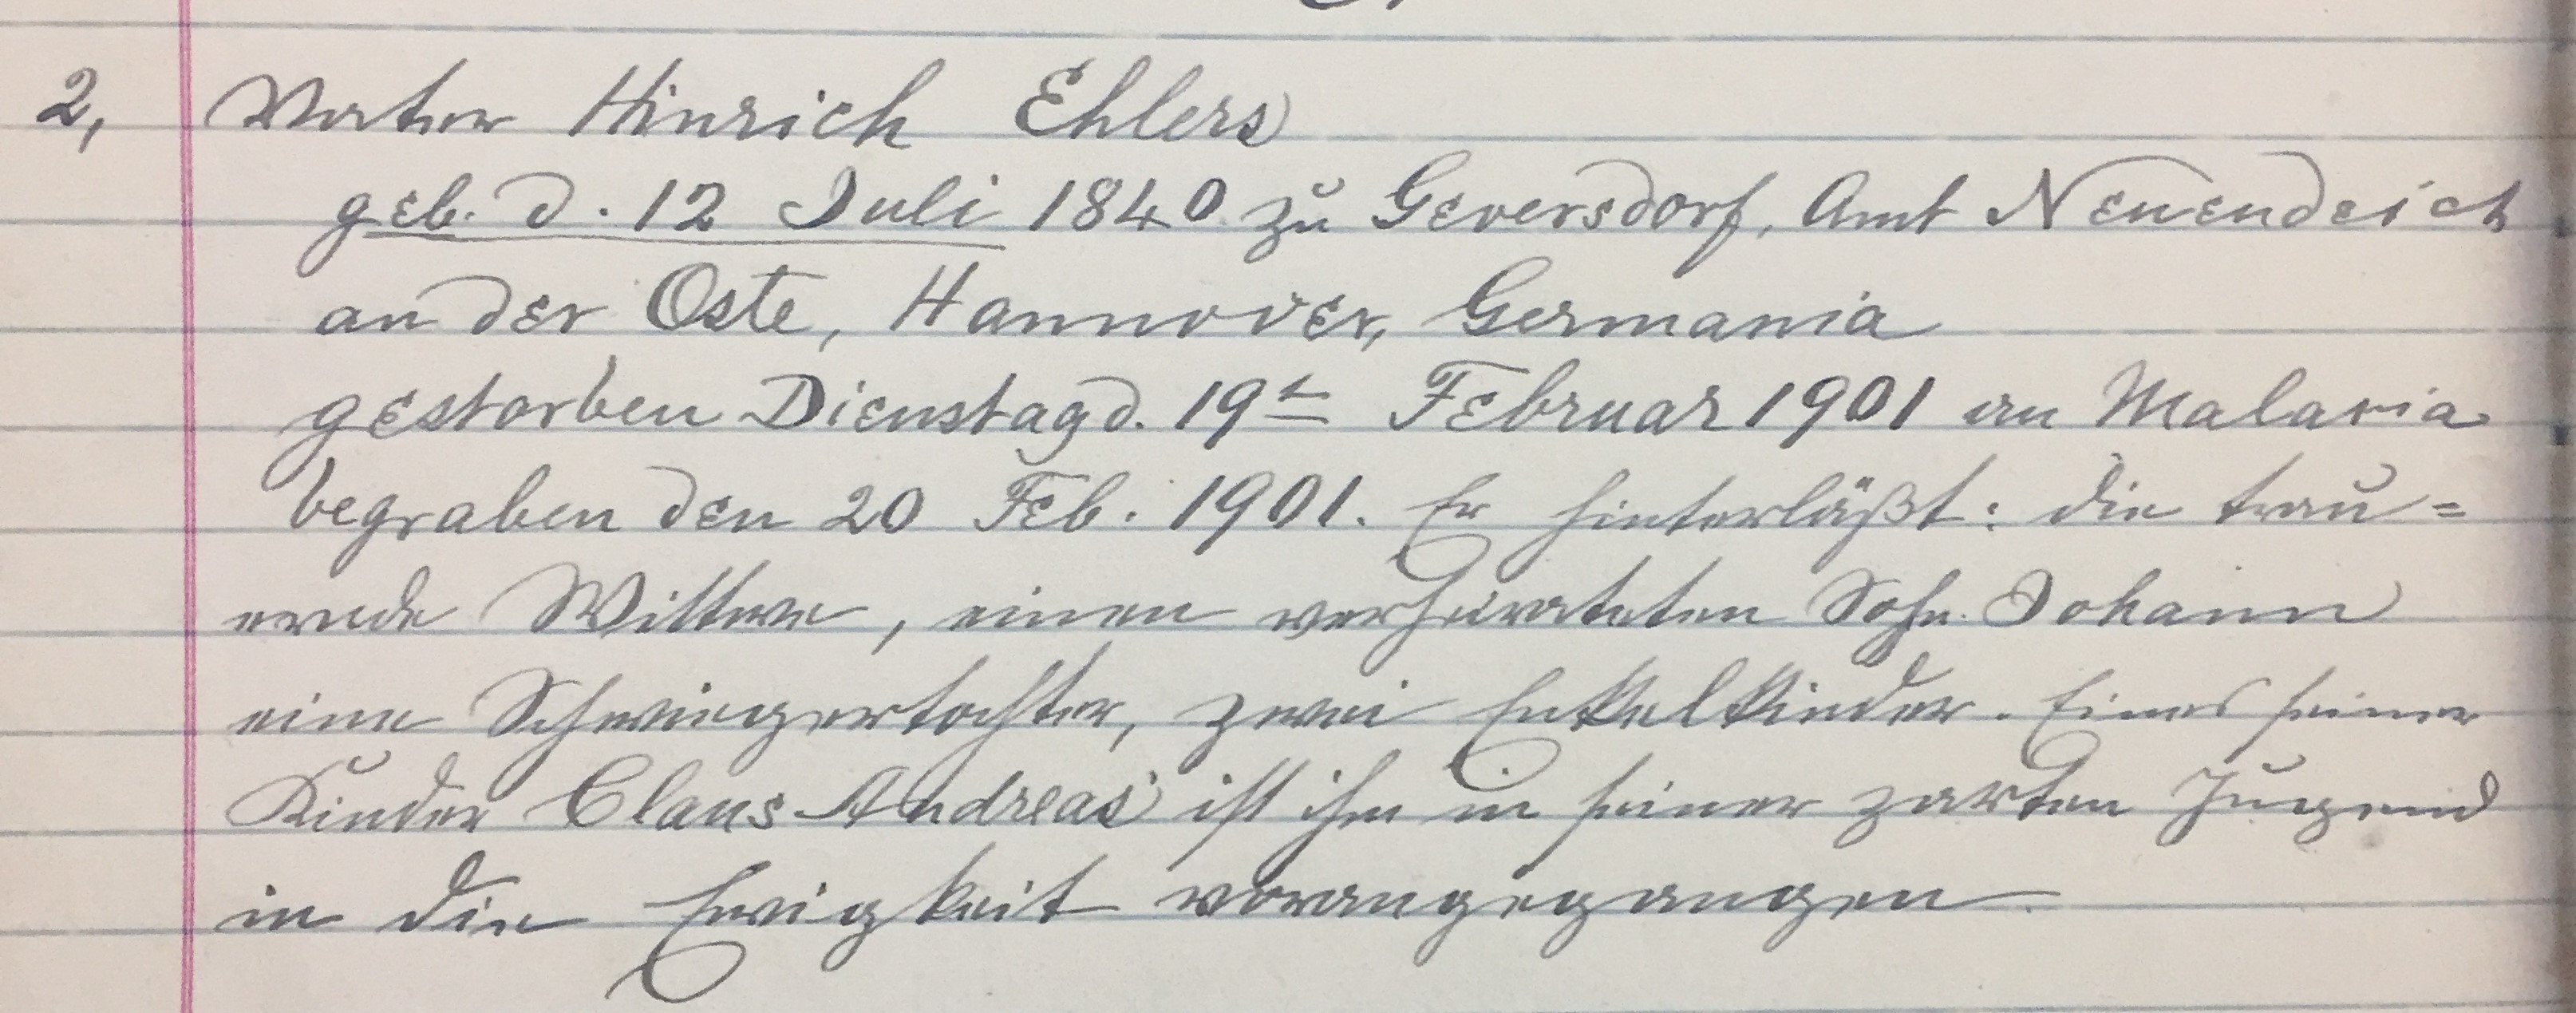 2, Vater Hinrich Ehlers
geb. d. 12 Juli 1840 zu Geversdorf, Amt Neuendeich
an der Oste, Hannover, Germania
gestorben Dienstag d. 19t Februar 1901 an Malaria
begraben den 20 Feb. 1901. Er hinterläßt: die trau=
ernde Wittwe, einen verheirateten Sohn Johann
eine Schwiegertochter, zwei Enkelkinder. Eines seiner
Kinder Claus Andreas ist ihm in seiner zarten Jugend
in die Ewigkeit vorangegangen.